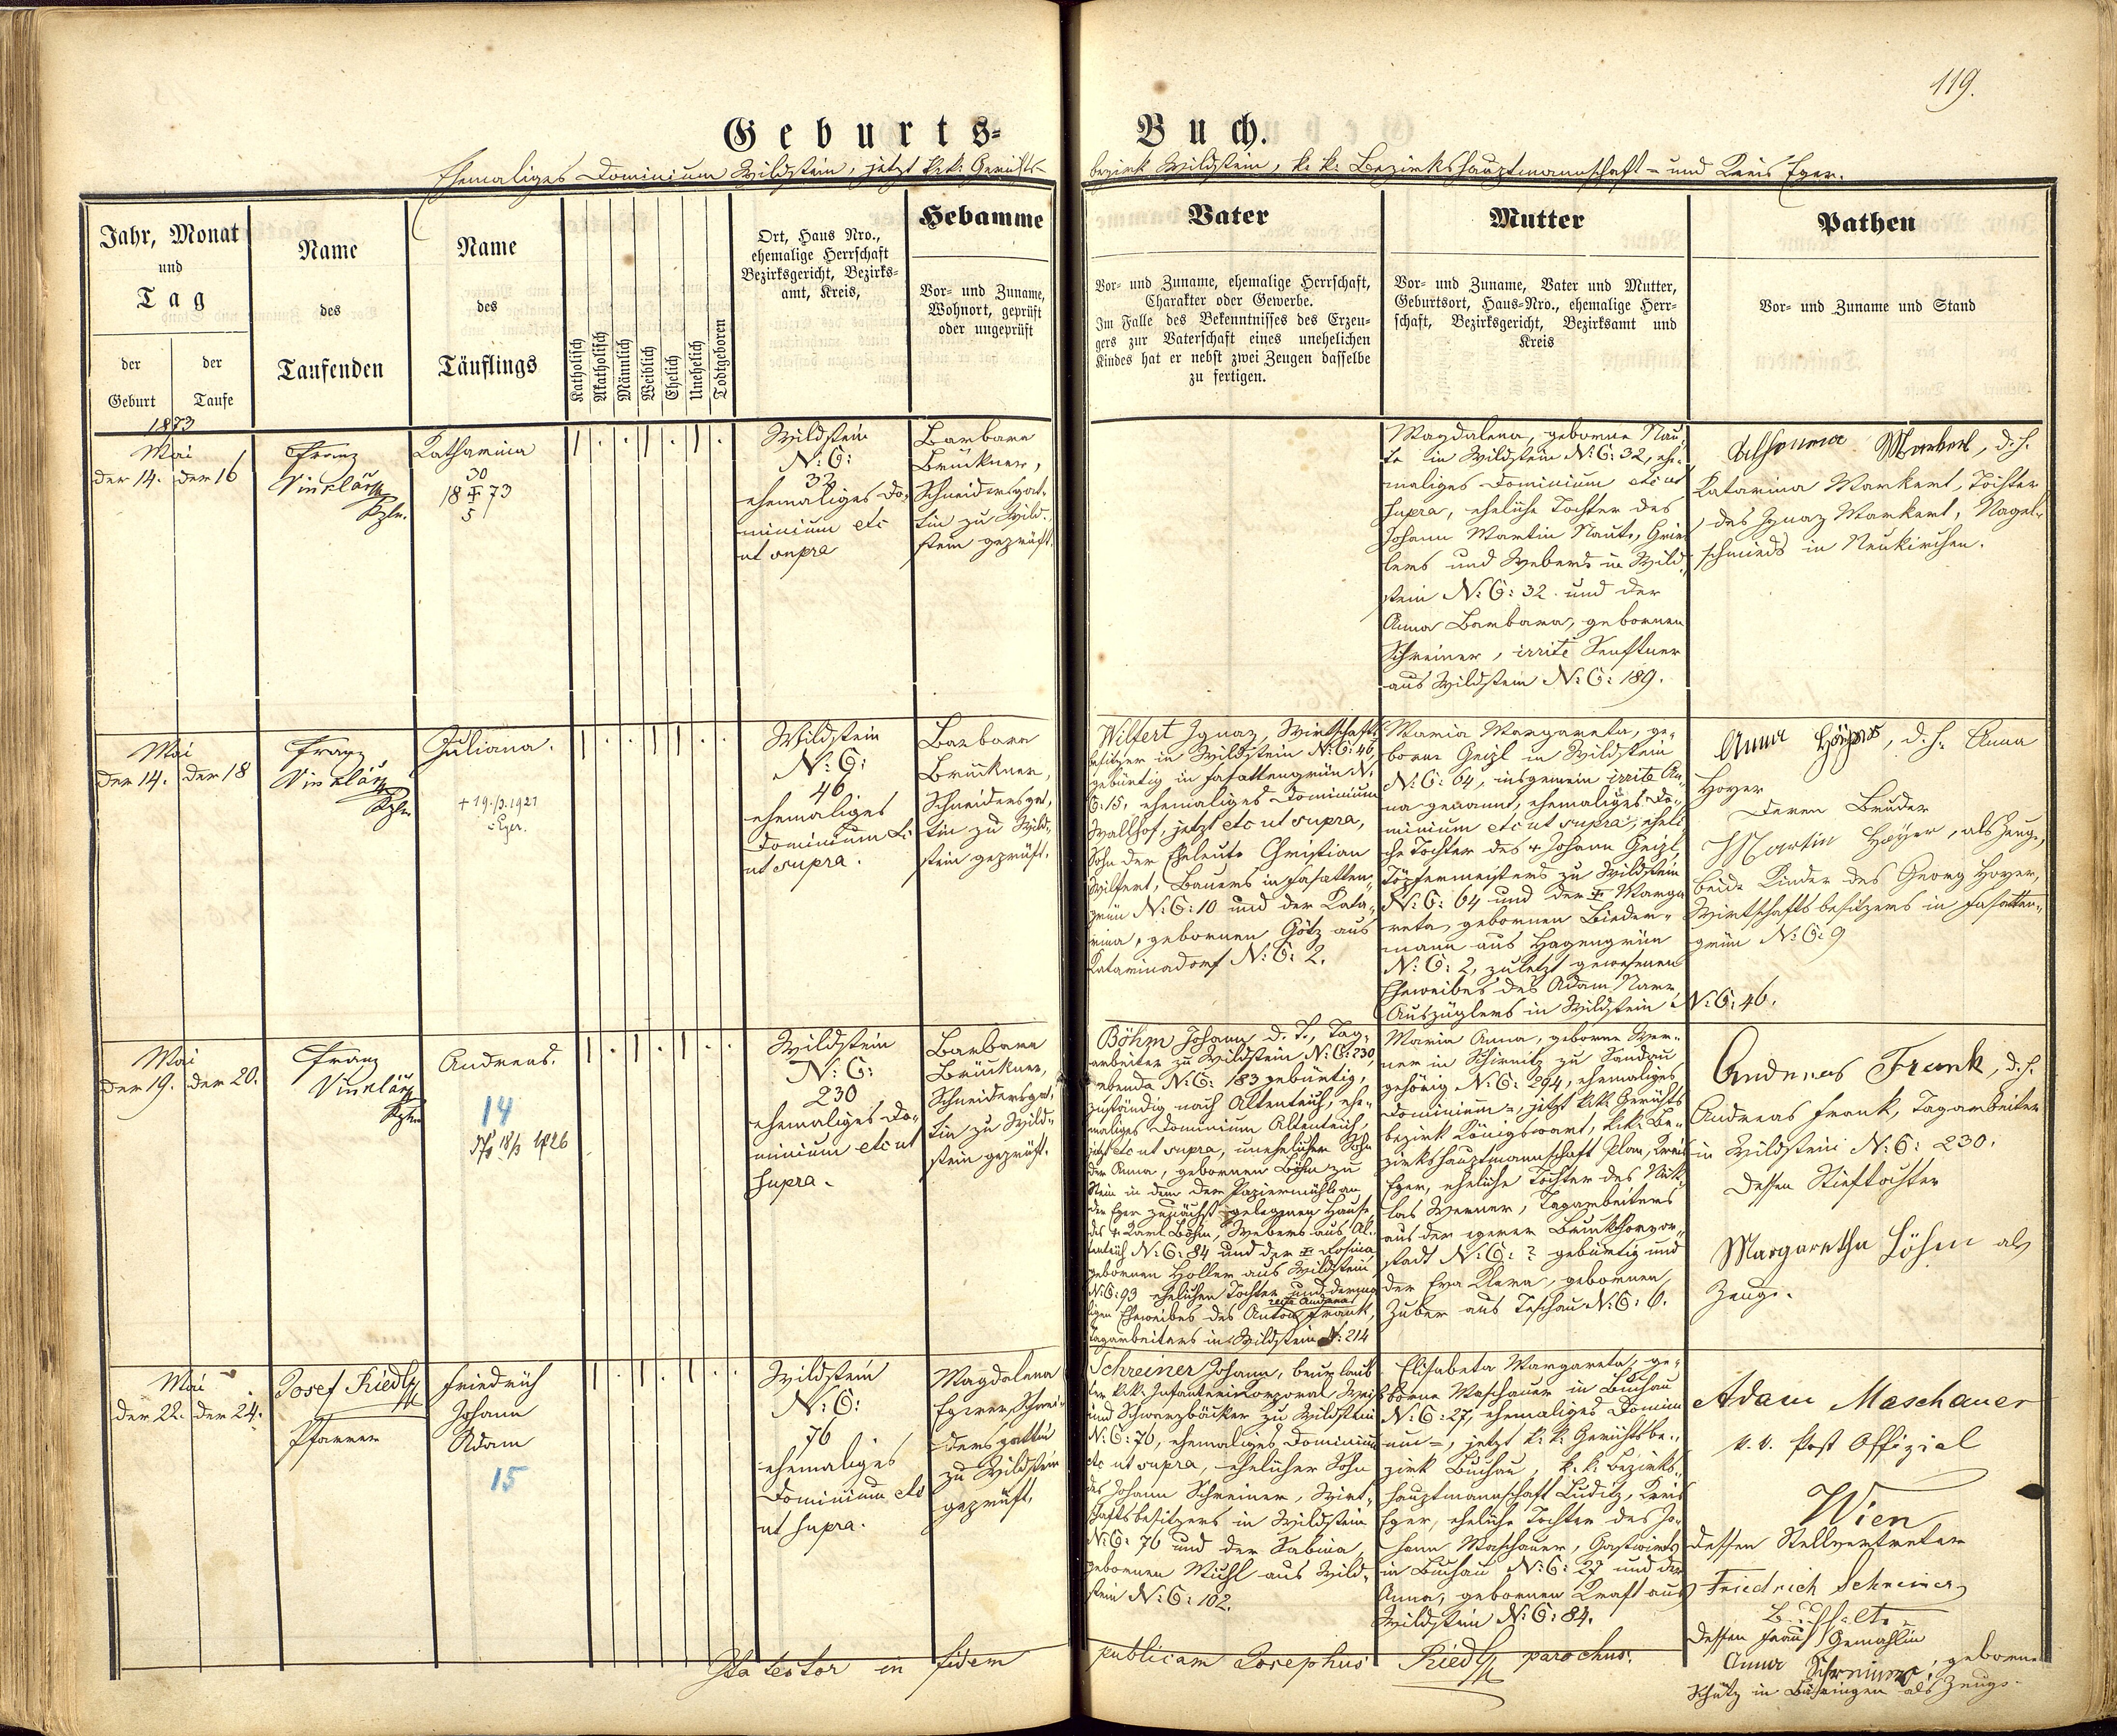 119.
Geburts-
Buch.
Ehemaliges Dominium Wildstein, jetzt k.k. Gerichts-
bezirk Wildstein, k. k. Bezirkshauptmannschaft - und Kreis Eger.
Jahr, Monat
und
Tag
der
Geburt
der
Taufe
Name
des
Taufenden
Name
des
Täuflings
Katholisch
Akatholisch
Männlich
Weiblich
Ehelich
Unehelich
Todtgeboren
Ort, Haus Nro.,
ehemalige Herrschaft
Bezirksgericht, Bezirks-
amt, Kreis,
Hebamme
Vor- und Zuname,
Wohnort, geprüft
oder ungeprüft
Vater
Vor- und Zuname, ehemalige Herrschaft,
Charakter oder Gewerbe.
Im Falle des Bekenntnisses des Erzeu-
gers zur Vaterschaft eines unehelichen
Kindes hat er nebst zwei Zeugen dasselbe
zu fertigen.
Mutter
Vor- und Zuname, Vater und Mutter,
Geburtsort, Haus-Nro., ehemalige Herr-
schaft, Bezirksgericht, Bezirksamt und
Kreis
Pathen
Vor- und Zuname und Stand
1873
Mai
der 14. der 16
Franz
Vinklář
Kpln.
Katharina
30
18 ‡ 73
5
Wildstein
N: C:
32
ehemaliges Do-
minium etc
ut supra
Barbara
Brückner,
Schneidersgat-
tin zu Wild-
stein geprüft.
Magdalena, geborne Nau-
te in Wildstein N: C: 32, ehe-
maliges Dominium etc ut
supra, eheliche Tochter des
Johann Martin Naute,
und Webers in Wild-
stein N: C: 32 und der
Anna Barbara, gebornen
Schreiner, irrite Senftner
aus Wildstein N: C: 189.
Katharina Markert, d. h.
Katarina Markert, Tochter
des Ignaz Markert, Nagel-
schmieds in Neukirchen.
Mai
der 14. der 18
Franz
Vinklář
Kpln
Juliana.
+ 19./3. 1921
Eger.
Wildstein
N: C:
46
ehemaliges
Dominium
ut supra.
Barbara
Brückner,
Schneidersgat-
tin zu Wild-
stein geprüft.
Wilfert Ignaz, Wirtschafts-
besitzer in Wildstein N: C: 46,
gebürtig in Fasattengrün N.
C: 15, ehemaliges Dominium
Wallhof, jetzt etc ut supra,
Sohn der Eheleute Christian
Wilfert, Bauers in Fasatten-
grün N: C: 10 und der Kata-
rina, gebornen Götz aus
Katarinadorf N: C: 2.
Maria Margareta, ge-
borne Geigl in Wildstein
N: C: 64, insgemein irrite An-
na genannt, ehemaliges Do-
minium etc ut supra, eheli-
che Tochter des + Johann Geigl,
Töpfermeisters zu Wildstein
N: C: 64 und der ‡ Marga-
reta, gebornen Bieder-
mann aus Hagengrün
N: C: 2, zuletzt gewesenen
Eheweibes des Adam
Auszüglers in Wildstein N: C: 46.
Anna Höyer, d. h. Anna
Hoyer
deren Bruder
Martin Höyer, als Zeuge,
beide Kinder des Georg Hoyer,
Wirtschaftsbesitzers in Fasatten-
grün N: C: 9
Mai
der 19. der 20.
Franz
Vinklář
Kpln
Andreas.
14
18/3 1926
Wildstein
N: C:
230
ehemaliges Do-
minium etc ut
supra.
Barbara
Brückner,
Schneidersgat-
tin zu Wild-
stein geprüft.
Böhm Johann d. Z., Tag-
arbeiter zu Wildstein N: C: 230,
ebenda N: C: 183 gebürtig,
zuständig nach Altenteich, ehe-
maliges Dominium Altenteich,
jetzt etc ut supra, unehelicher Sohn
der Anna, gebornen Böhm zu
Stein in dem der Papiermühle an
der Eger zunächst gelegenen Hause,
des + Karl Böhm, Webers aus Al-
tenteich N: C: 84 und der ‡ Rosina
gebornen Holler aus Wildstein
N: C: 93 ehelichen Tochter und derma-
ligen Eheweibes des Anton recte Andreas Frank,
Tagarbeiters in Wildstein N: 214
Maria Anna, geborne Wer-
ner in Schirnitz zu Sandau
gehörig N: C: 294, ehemaliges
Dominium =, jetzt k.k. Gerichts
bezirk Königswart, k.k. Be-
zirkshauptmannschaft Plan, Kreis
Eger, eheliche Tochter des Nik-
las Werner, Tagarbeiters
aus der egerer
stadt N: C: ? gebürtig und
der Eva Klara, gebornen
Zuber aus Teschau N: C: 6.
Andreas Frank, d. h.
Andreas Frank, Tagarbeiter
in Wildstein N: C: 230.
dessen Stieftochter
Margaretha Böhm als
Zeuge.
Mai
der 22. der 24.
Josef Riedl
Pfarrer
Friedrich
Johann
Adam
15
Wildstein
N: C:
76
ehemaliges
Dominium etc
ut supra.
Magdalena
Egerer, Schnei-
dersgattin
zu Wildstein
geprüft.
Schreiner Johann, beurlaub-
ter k.k. Infanterie-Korporal Weiß
und Schwarzbäcker zu Wildstein
N: C: 76, ehemaliges Dominium
etc ut supra, ehelicher Sohn
des Johann Schreiner, Wirt-
schaftsbesitzers in Wildstein
N: C: 76 und der Sabina,
gebornen Mühl aus Wild-
stein N: C: 102.
Elisabeta Margareta, ge-
borne Maschauer in Buchau
N: C: 27, ehemaliges Domini-
um =, jetzt k. k. Gerichtsbe-
zirk Buchau, k. k. Bezirks-
hauptmannschaft Luditz, Kreis
Eger, eheliche Tochter des Jo-
hann Maschauer, Gastwirts
in Buchau N: C: 27 und der
Anna, gebornen Kraft aus
Wildstein N: C: 84.
Adam Maschauer
k. k. Post Offizial
Wien
dessen Stellvertreter
Friedrich Schreiner
dessen Frau Gemahlin
Anna Schreiner, geborne
Schütz in als Zeuge.
Ita testor in fidem
publicam Josephus Riedl parochus.